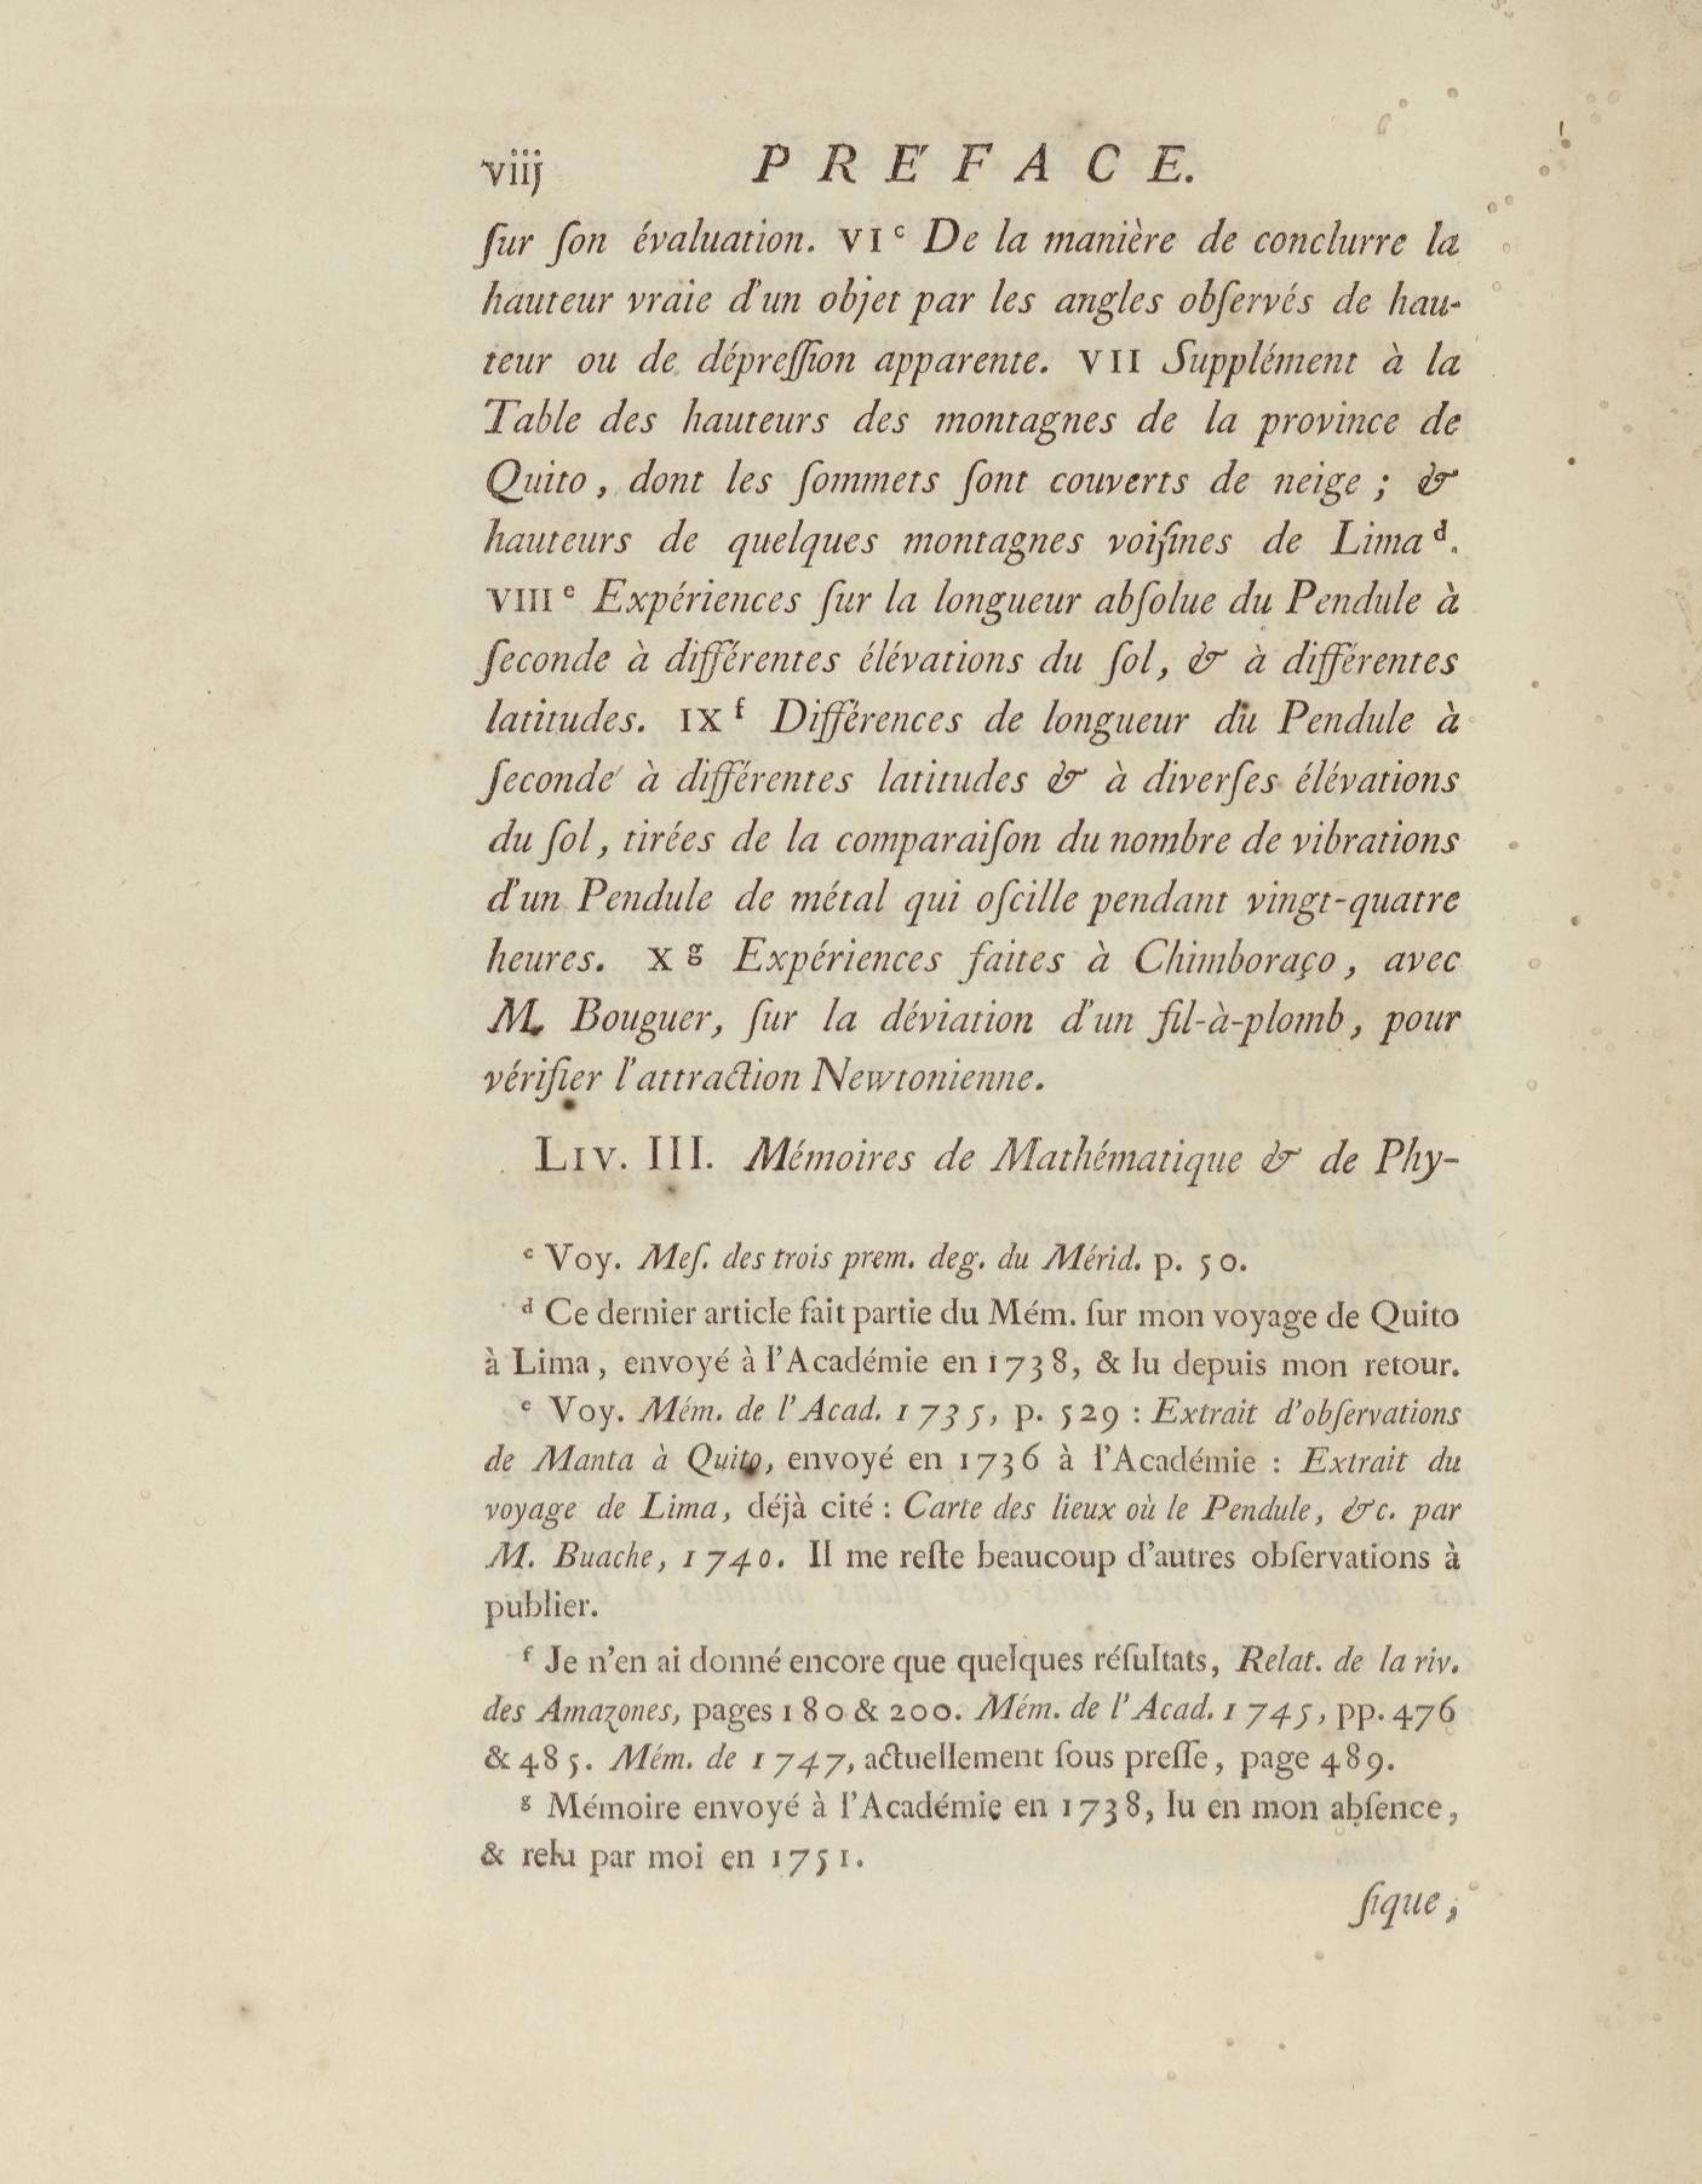 viij PRÉFACE.
ſur ſon évaluation. VI ᶜ De la manière de conclurre la
hauteur vraie d'un objet par les angles obſervés de hau-
teur ou de dépreſſion apparente. VII Supplément à la
Table des hauteurs des montagnes de la province de
Quito, dont les ſommets ſont couverts de neige; &
hauteurs de quelques montagnes voiſines de Lima ᵈ.
VIII ᵉ Expériences ſur la longueur abſolue du Pendule à
ſeconde à différentes élévations du ſol, & à différentes
latitudes. IX ᶠ Différences de longueur du Pendule à
ſeconde à différentes latitudes & à diverſes élévations
du ſol, tirées de la comparaiſon du nombre de vibrations
d'un Pendule de métal qui oſcille pendant vingt-quatre
heures. X ᵍ Expériences faites à Chimboraço, avec
M. Bouguer, ſur la déviation d'un fil-à-plomb, pour
vérifier l'attraction Newtonienne.
LIV. III. Mémoires de Mathématique & de Phy-
ᶜ Voy. Meſ. des trois prem. deg. du Mérid. p. 50.
ᵈ Ce dernier article fait partie du Mém. ſur mon voyage de Quito
à Lima, envoyé à l'Académie en 1738, & lu depuis mon retour.
ᵉ Voy. Mém. de l'Acad. 1735, p. 529 : Extrait d'obſervations
de Manta à Quito, envoyé en 1736 à l'Académie : Extrait du
voyage de Lima, déjà cité : Carte des lieux où le Pendule, &c. par
M. Buache, 1740. Il me reſte beaucoup d'autres obſervations à
publier.
ᶠ Je n'en ai donné encore que quelques réſultats, Relat. de la riv.
des Amazones, pages 180 & 200. Mém. de l'Acad. 1745, pp. 476
& 485. Mém. de 1747, actuellement ſous preſſe, page 489.
ᵍ Mémoire envoyé à l'Académie en 1738, lu en mon abſence,
& relu par moi en 1751.
ſique;